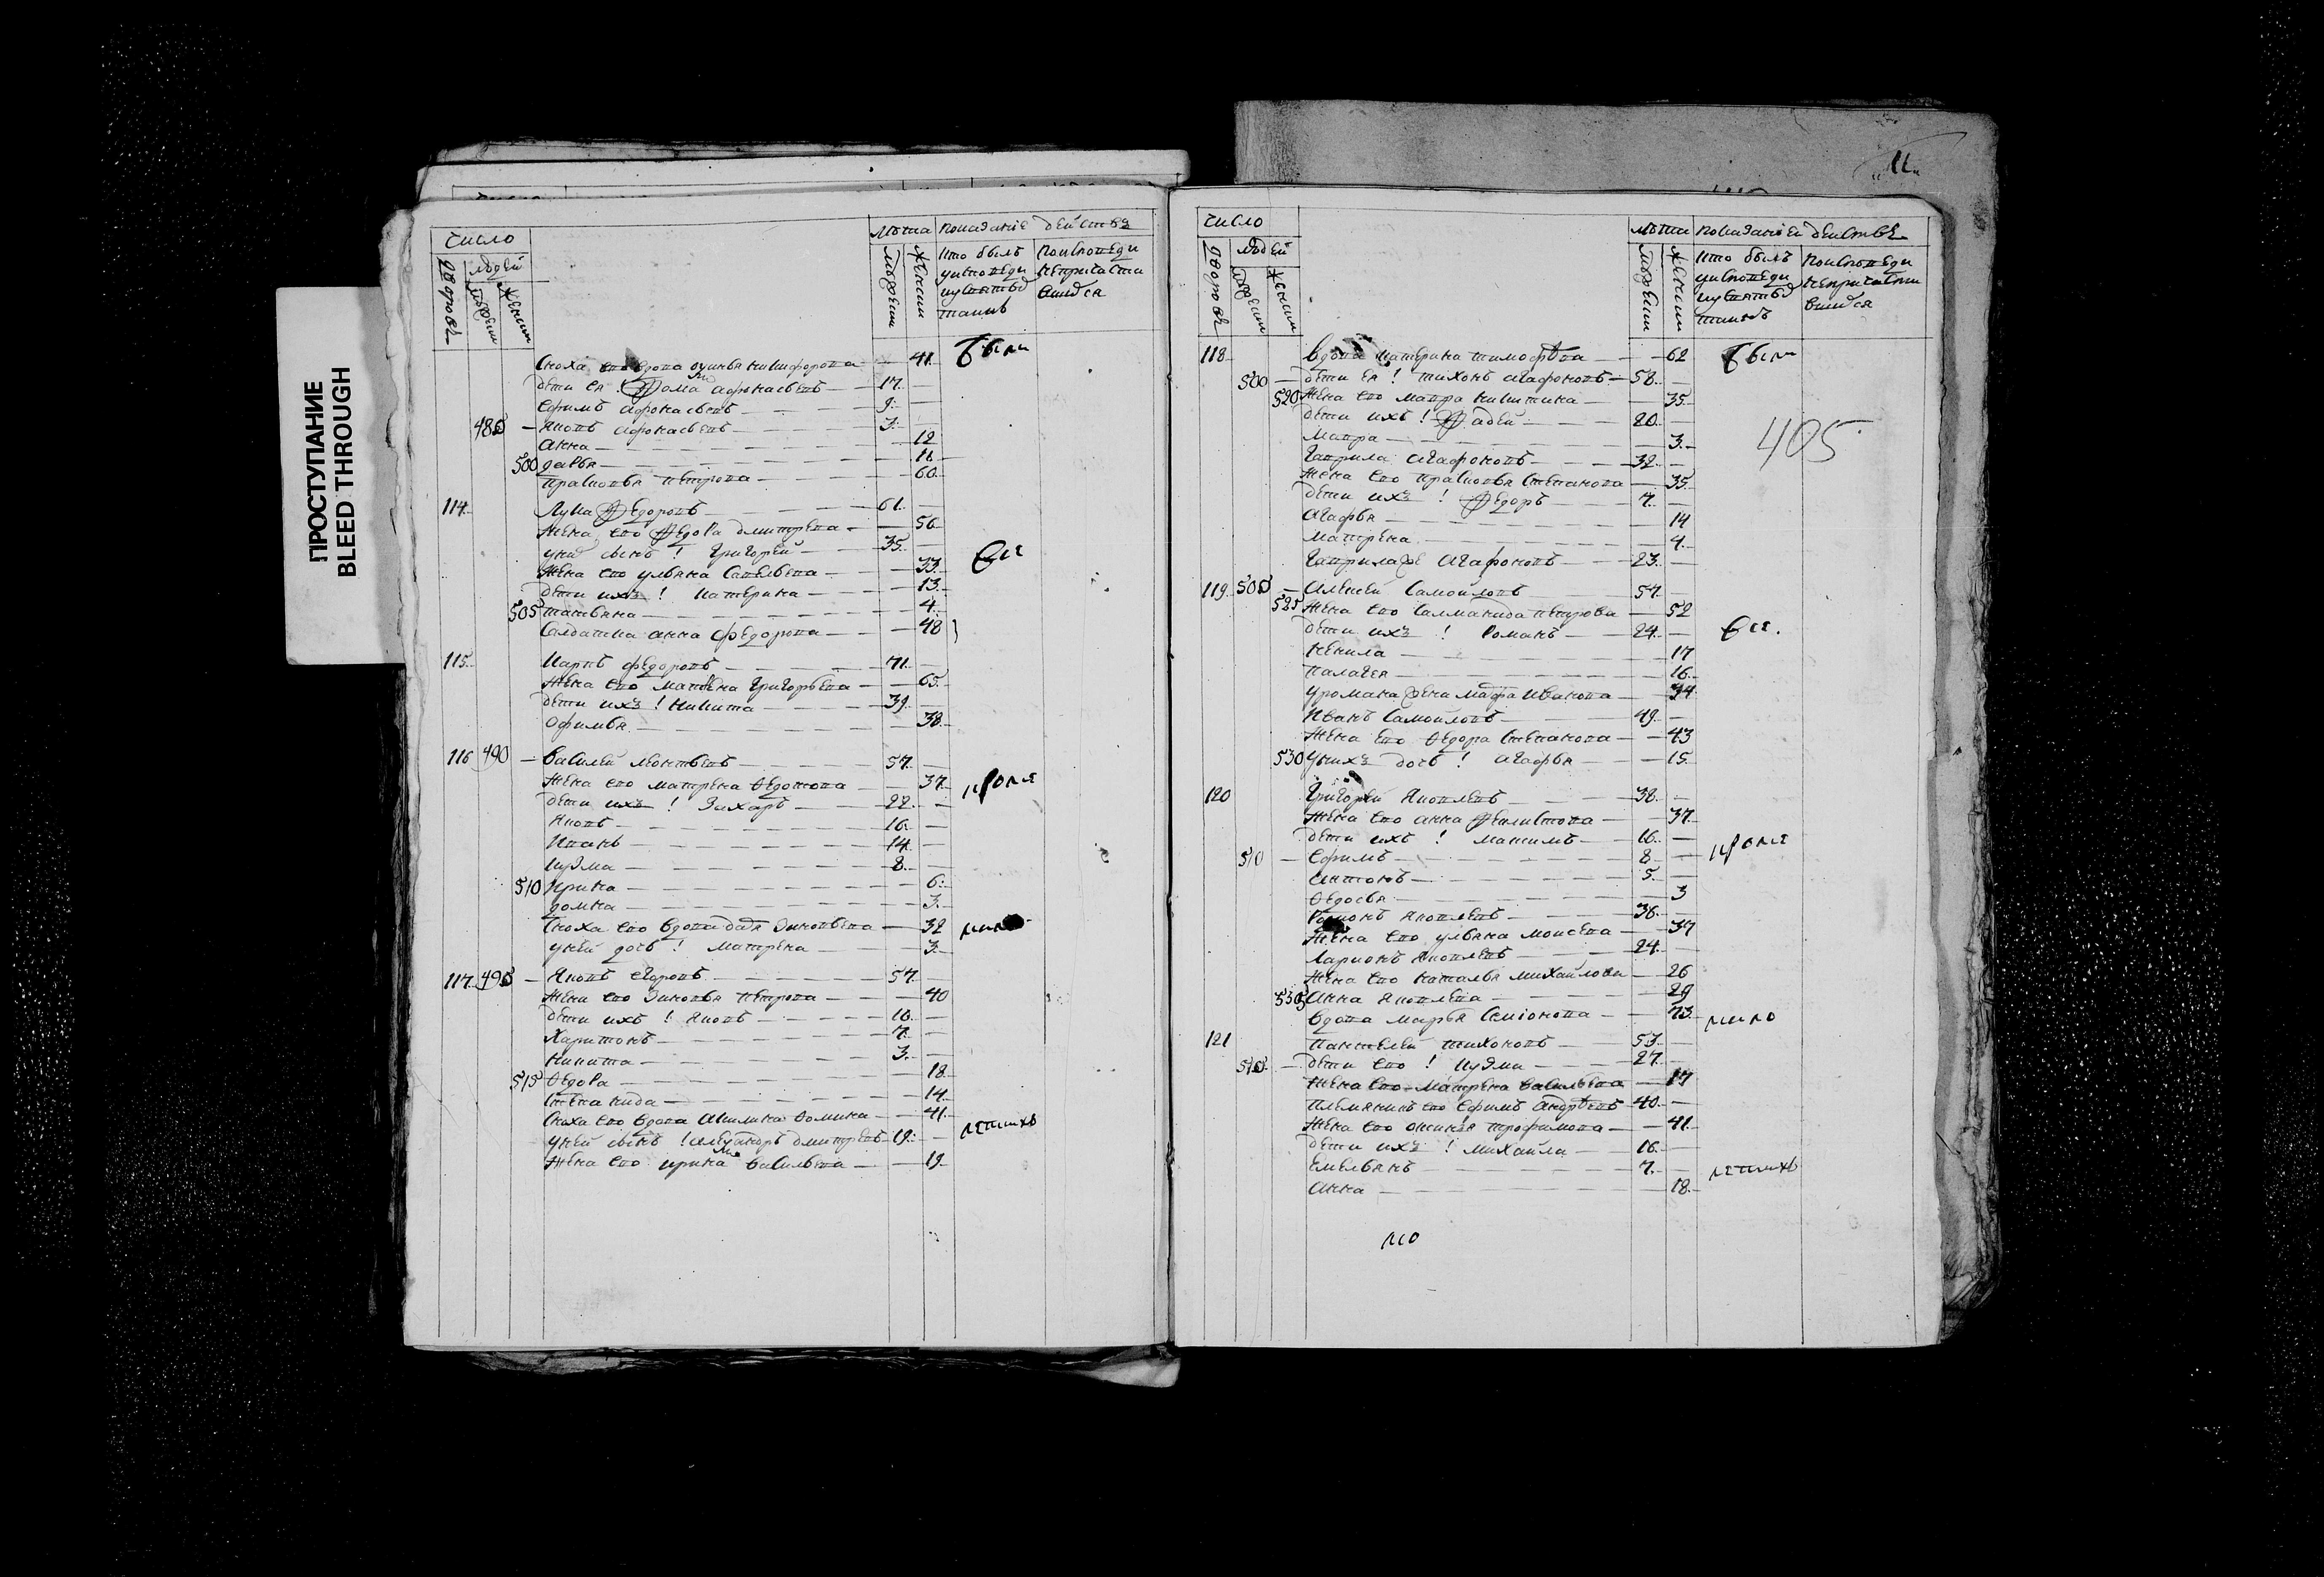 ПРОСТУПАНИЕ
BLEED THROUGH
число
лѣта показание действъ
дворовъ
людей
мужеск
женски
мужески
женски
кто былъ
у исповеди
и у святыхъ
таинъ
по исповеди
не причаста
вшихся
Сноха его вдова Никифорова — 41. были
дети ея ! Фома Афонасьевъ — 17.
Ефимъ Афонасьевъ — 9.
485 — Яковъ Афонасьевъ — 3.
Анна — 12
500 дарья — 11.
Прасковья Петрова — 60.
114. Лука Федоровъ — 61.
Жена его Федора Дмитрева — 56
у них сынъ ! Григорей — 35. вси
Жена его Ульяна Савельева — 33.
дети ихъ ! Катерина — 13.
505 Татьяна — 4.
Салдатка Анна Федорова — 48
115. Карпъ Федоровъ — 71.
Жена его Матрена Григорьева — 65.
дети ихъ ! Никита — 39.
Офимья — 38.
116 490 — Василей Леонтьевъ — 57.
Жена его Матрена Федотова — 37. кроме
дети ихъ ! Захаръ — 22.
Яковъ — 16.
Иванъ — 14.
Кузма — 8.
510 Ирина — 6.
домна — 3.
Сноха его вдова Зиновьева — 32 мало
у ней дочь ! Матрена — 3.
117. 495 — Яковъ Егоровъ — 57.
Жена его Зиновья Петрова — 40
дети ихъ ! Яковъ — 10.
Харитонъ — 7.
Никита — 3.
515 Федора — 18.
Степанида — 14.
Сноха его вдова Акилина Фомина — 41. летнихъ
у ней сынъ ! Александръ Дмитревъ — 19.
Жена его Ирина Васильева — 19.
число
лѣта показание действе
дворовъ
людей
мужески
женски
мужески
женски
кто былъ
у исповеди
и у святыхъ
таинъ
по исповеди
не причасти
вшихся
118 Вдова Катерина Тимофѣева — 62 были
500 — дети ея ! Тихонъ Агафоновъ — 58.
520 Жена его Мавра Никитина — 35.
дети ихъ ! Фадей — 20.
405
Мавра — 3.
Гаврила Агафоновъ — 32.
Жена его Прасковья Степанова — 35.
дети ихъ ! Федоръ — 7.
Агафья — 14
Матрена — 4.
Гаврила же Агафоновъ — 23.
119. 505 — Алексей Самойловъ — 57.
525 Жена его Саламанида Петрова — 52
дети ихъ ! Романъ — 24. вси.
Ненила — 17
Палагея — 16.
у Романа жена Марфа Иванова — 24
Иванъ Самойловъ — 49.
Жена его Федора Степанова — 43
530 у нихъ дочь ! Агафья — 15
120 Григорей Яковлевъ — 38.
Жена его Анна Феклистова — 37.
дети ихъ ! Максимъ — 16. кроме
510 — Ефимъ — 8.
Антонъ — 5.
Федосья — 3
Яковлевъ — 36.
Жена его Ульяна Моисеева — 37
Ларионъ Яковлевъ — 24.
Жена его Наталья Михайлова — 26
535 Анна Яковлева — 29
Вдова Марья Семионова — 73. мало
121 Пантелей Тихоновъ — 53.
515 — дети его ! Кузма — 27.
Жена его Матрена Васильева — 17
Племянникъ его Ефимъ Андрѣевъ — 40.
Жена его Трофимова — 41.
дети ихъ ! Михайла — 16.
Емельянъ — 7. летнихъ
Анна — 18.